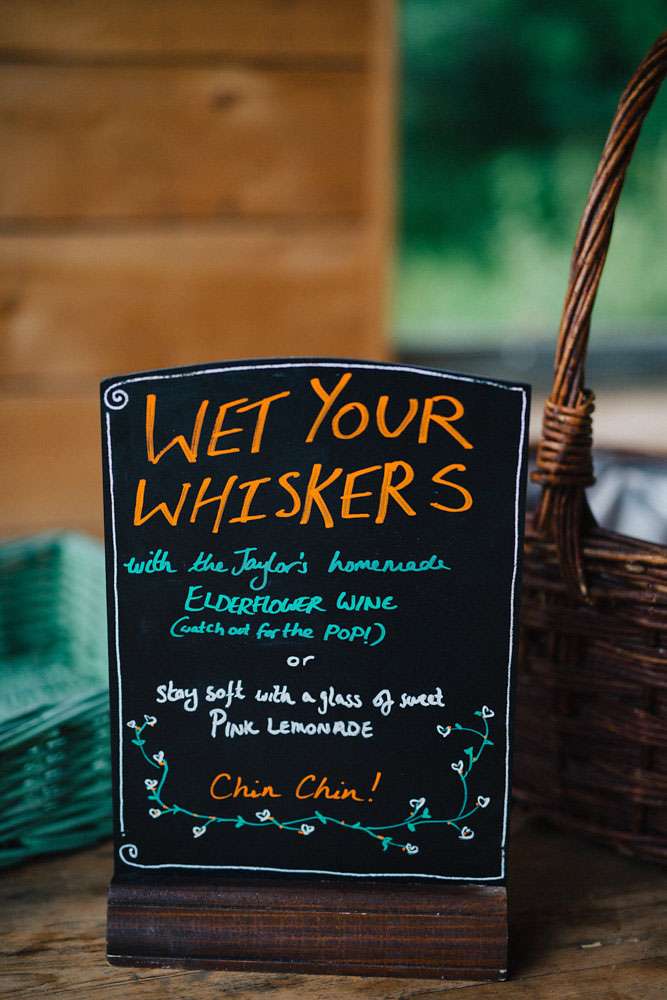 WET YOUR
WHISKERS
with the Taylor's homemade
ELDERFLOWER WINE
(watch out for the POP!)
or
stay soft with a glass of sweet
PINK LEMONADE
Chin Chin!